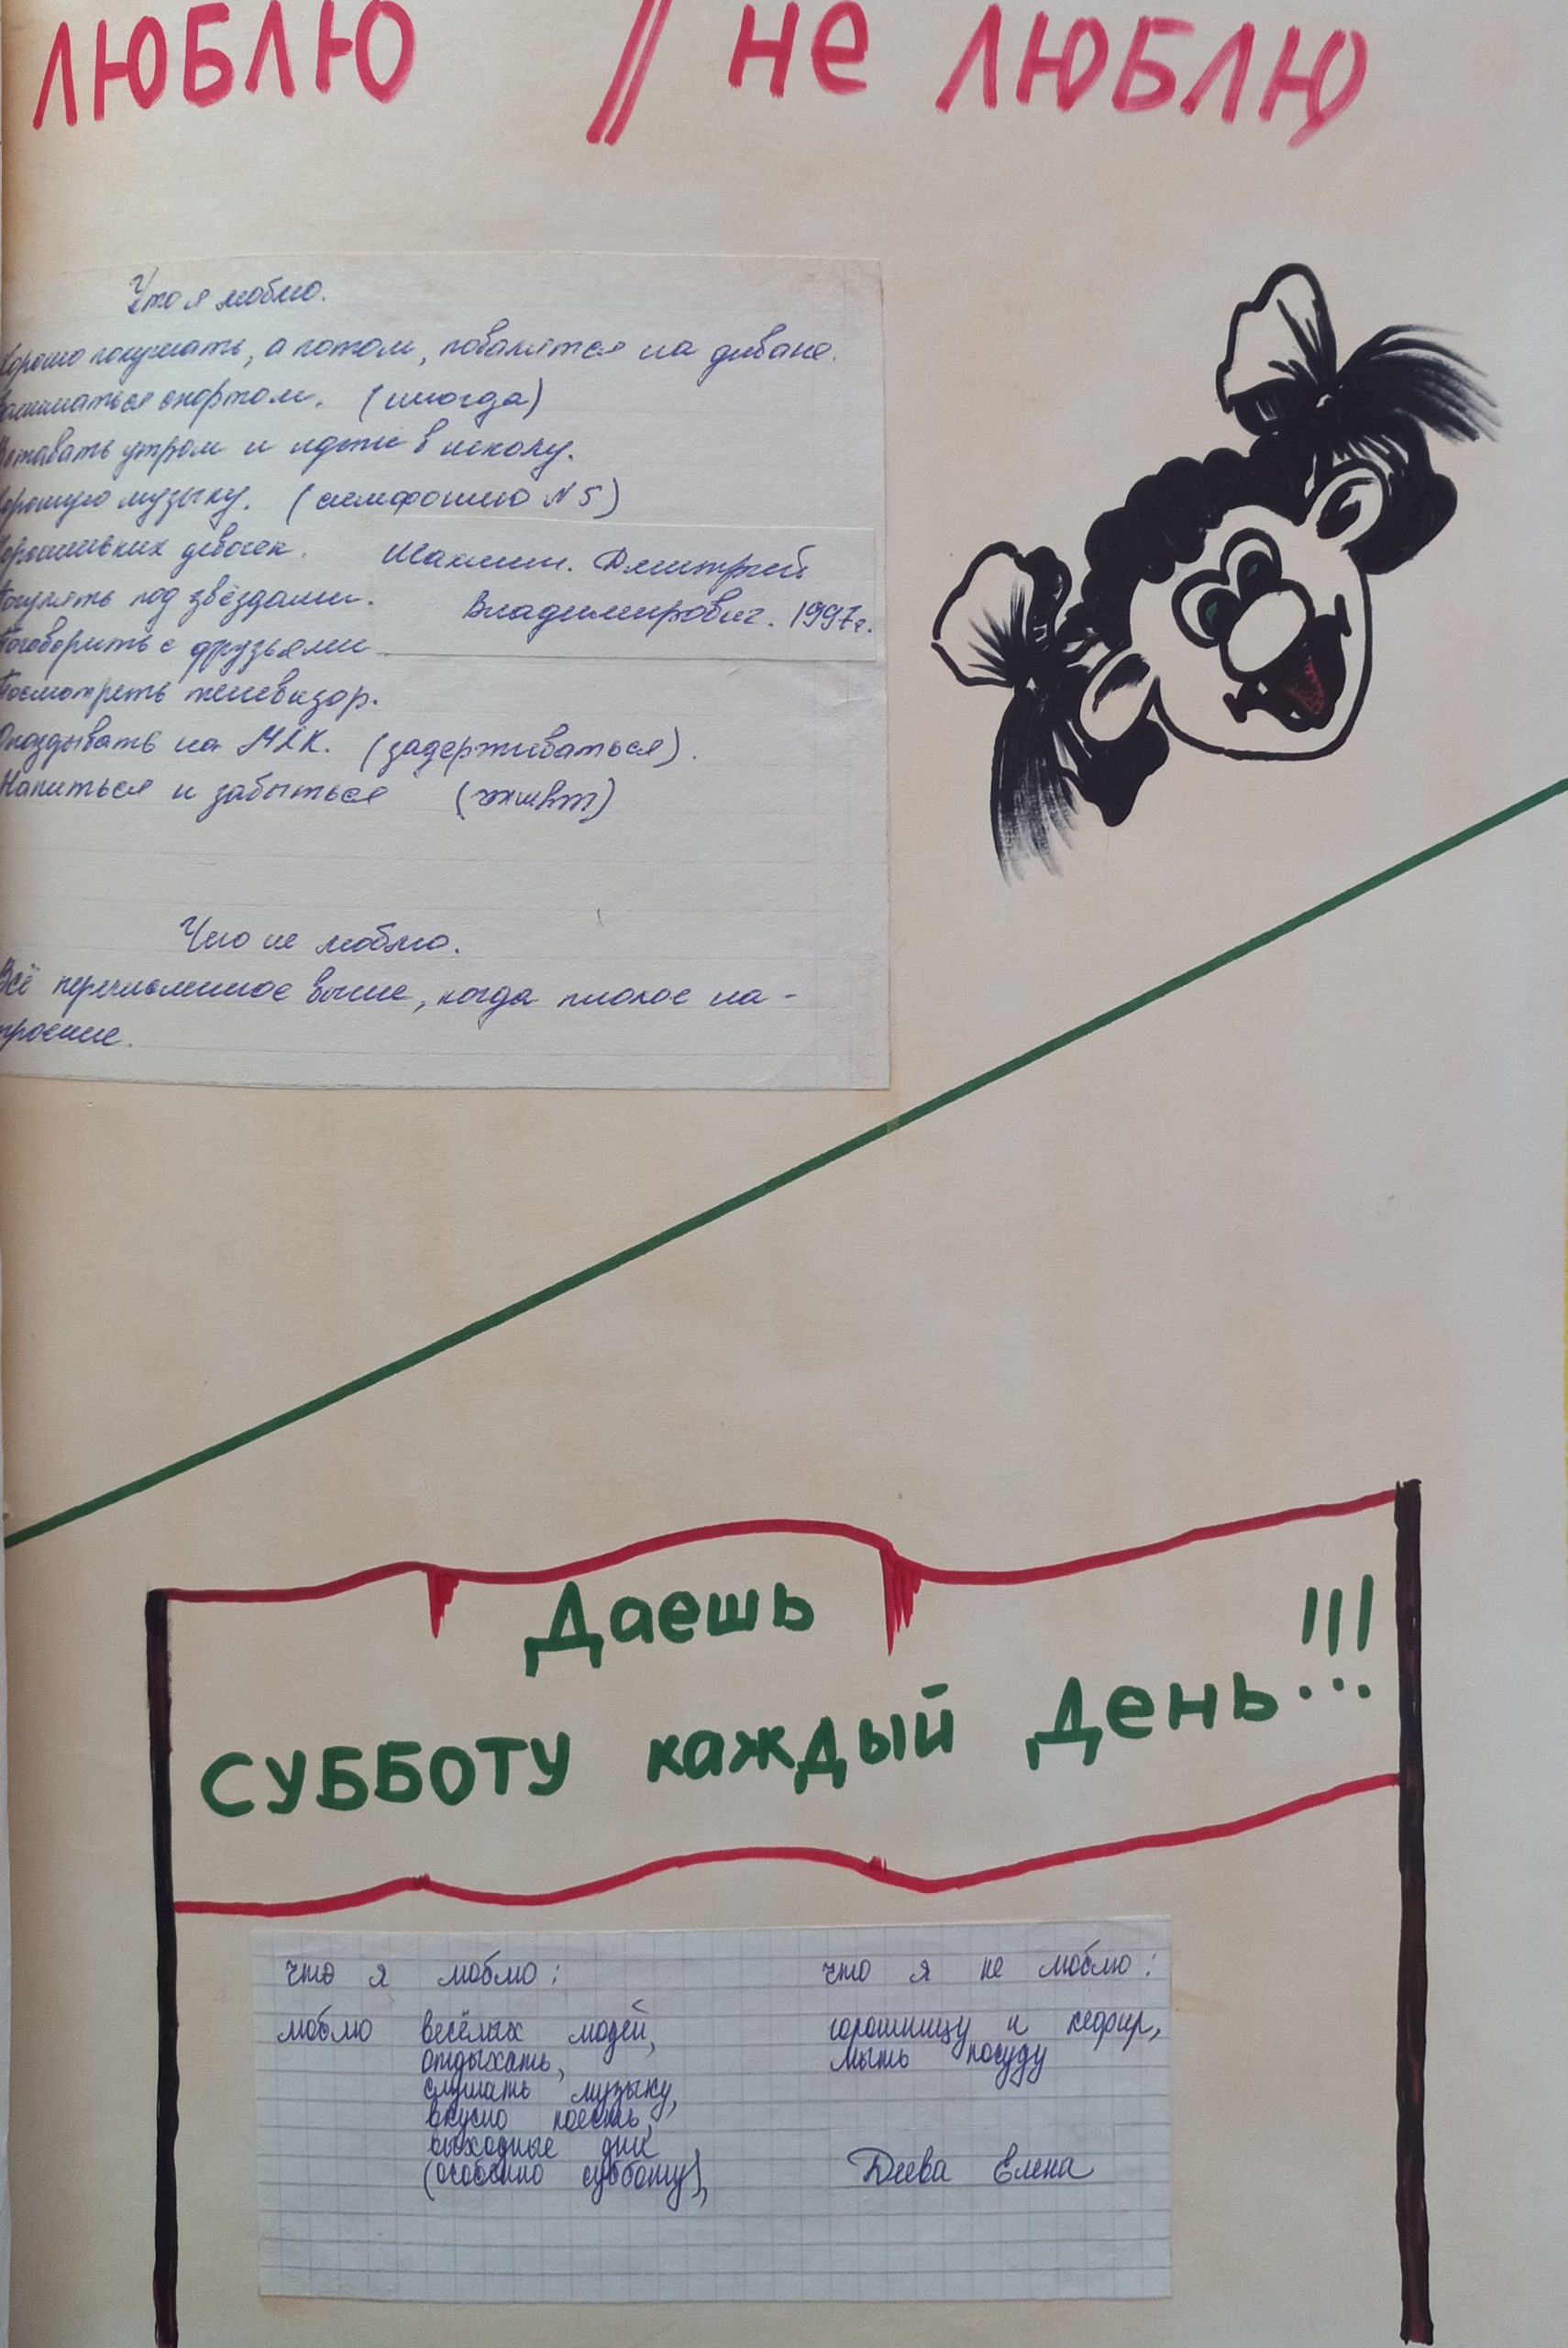 ЛЮБЛЮ // не ЛЮБЛЮ
Что я люблю.
Хорошо покушать, а потом, повалятся на диване.
Заниматься спортом. (иногда)
Вставать утром и идти в школу.
Хорошую музыку. (симфонию N 5)
Хорошеньких девочек.
Погулять под звёздами.
Поговорить с друзьями
Посмотреть телевизор.
Опаздывать на МХК. (задерживаться).
Напиться и забыться
Дмитрий
Владимирович. 1997г.
Что не люблю.
Всё перечисленное выше, когда плохое на-
троение.
Даешь
СУББОТУ каждый день...!!!
что я люблю:
люблю весёлых людей,
отдыхать,
слушать музыку,
вкусно поесть,
выходные дни
(особенно субботу),
что я не люблю:
горошницу и кефир,
мыть посуду
Деева Елена